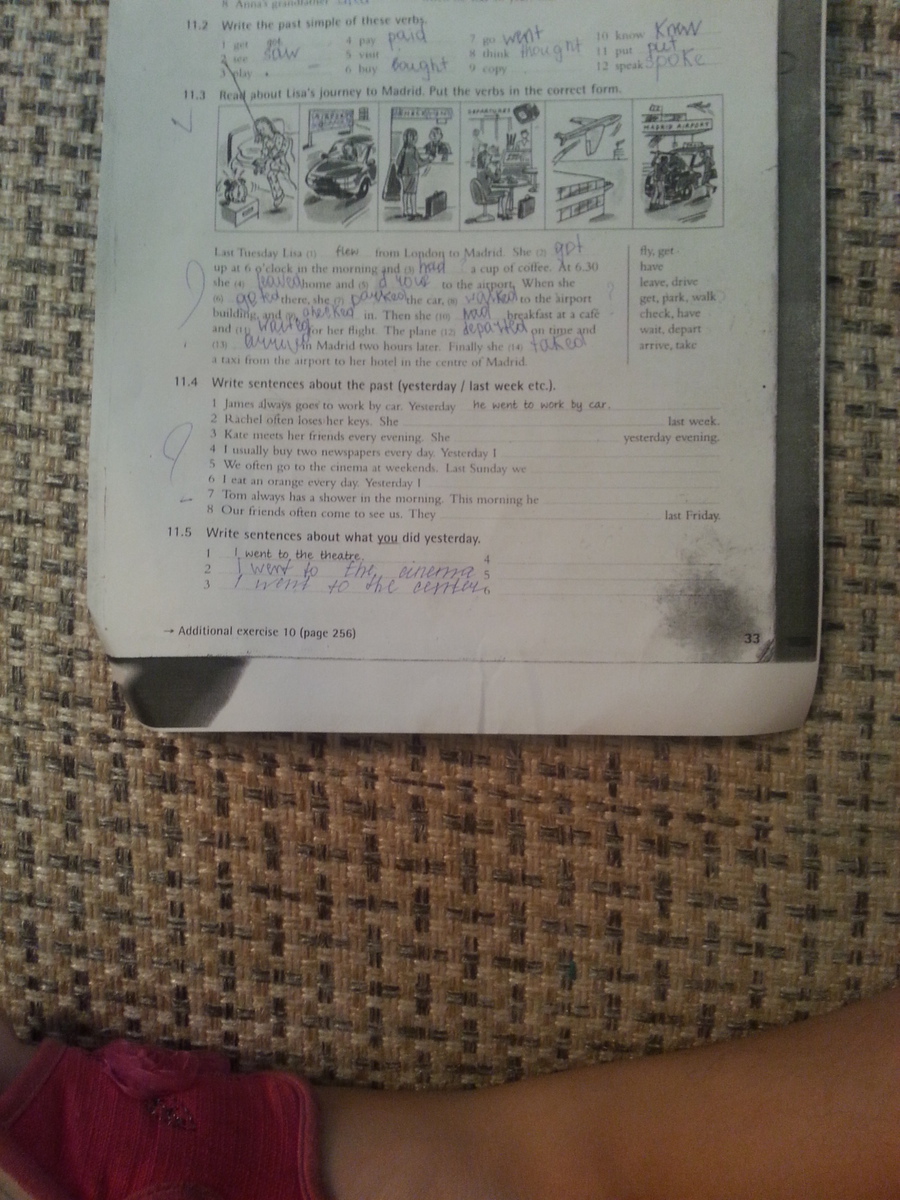 8 Anna's grandfather
11.2 Write the past simple of these verbs.
1 get got 4 pay paid 7 go went 10 know know
2 see saw 5 visit 8 think thought 11 put put
3 play 6 buy bought 9 copy 12 speak spoke
11.3 Read about Lisa's journey to Madrid. Put the verbs in the correct form.
AIRPORT
CHECK-IN
DEPARTURES
MADRID AIRPORT
Last Tuesday Lisa (1) flew from London to Madrid. She (2) got fly, get
up at 6 o'clock in the morning and (3) had a cup of coffee. At 6.30 have
she (4) leaved home and (5) to the airport. When she leave, drive
(6) geted there, she (7) parked the car, (8) walked to the airport get, park, walk
building, and (9) checked in. Then she (10) had breakfast at a café check, have
and (11) waited for her flight. The plane (12) departed on time and wait, depart
(13) in Madrid two hours later. Finally she (14) taked arrive, take
a taxi from the airport to her hotel in the centre of Madrid.
11.4 Write sentences about the past (yesterday / last week etc.).
1 James always goes to work by car. Yesterday he went to work by car.
2 Rachel often loses her keys. She last week.
3 Kate meets her friends every evening. She yesterday evening.
4 I usually buy two newspapers every day. Yesterday I
5 We often go to the cinema at weekends. Last Sunday we
6 I eat an orange every day. Yesterday I
7 Tom always has a shower in the morning. This morning he
8 Our friends often come to see us. They last Friday.
11.5 Write sentences about what you did yesterday.
1 I went to the theatre. 4
2 I went to the cinema 5
3 I went to the center 6
→ Additional exercise 10 (page 256)
33